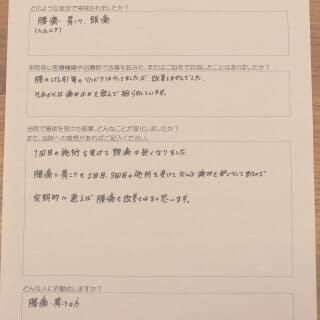 どのような症状で来院されましたか？
腰痛、肩こり、頭痛
(ヘルニア)
来院前に医療機関や治療院で改善を試みた、またはご自宅で対処したことはありましたか？
腰のけん引等のリハビリはやってましたが、改善しませんでした。
それからは痛み止めを飲んで
当院で施術を受けた結果、どんなことが変化しましたか？
また、当院への感想があればご記入ください。
1回目の施術を受けて頭痛は軽くなりました。
腰痛と肩こりも2回目、3回目の施術を受けて
定期的に通えば腰痛も改善されると思います。
どんな人にお勧めしますか？
腰痛・肩こりの方